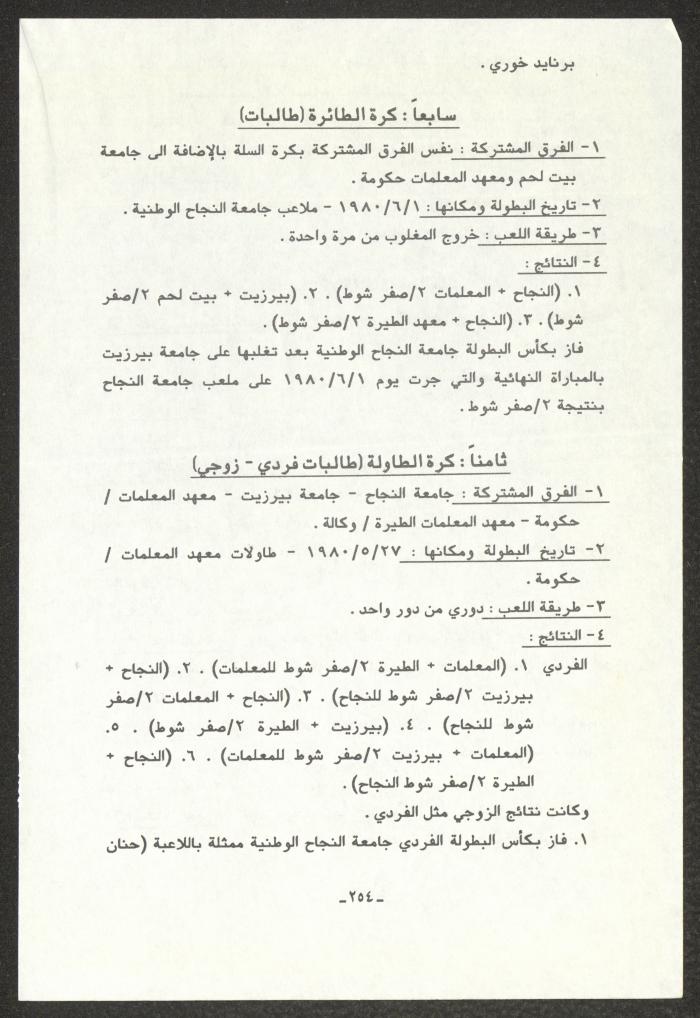 برنايد خوري .
سابعاً : كرة الطائرة (طالبات)
١- الفرق المشتركة : نفس الفرق المشتركة بكرة السلة بالإضافة الى جامعة
بيت لحم ومعهد المعلمات حكومة .
٢- تاريخ البطولة ومكانها : ١٩٨٠/٦/١ - ملاعب جامعة النجاح الوطنية .
٣- طريقة اللعب : خروج المغلوب من مرة واحدة .
٤- النتائج :
١. (النجاح + المعلمات ٢/صفر شوط) . ٢. (بيرزيت + بيت لحم ٢/صفر
شوط) . ٣. (النجاح + معهد الطيرة ٢/صفر شوط) .
فاز بكأس البطولة جامعة النجاح الوطنية بعد تغلبها على جامعة بيرزيت
بالمباراة النهائية والتي جرت يوم ١٩٨٠/٦/١ على ملعب جامعة النجاح
بنتيجة ٢/صفر شوط .
ثامناً : كرة الطاولة (طالبات فردي - زوجي)
١- الفرق المشتركة : جامعة النجاح - جامعة بيرزيت - معهد المعلمات /
حكومة - معهد المعلمات الطيرة / وكالة .
٢- تاريخ البطولة ومكانها : ١٩٨٠/٥/٢٧ - طاولات معهد المعلمات /
حكومة .
٣- طريقة اللعب : دوري من دور واحد .
٤- النتائج :
الفردي ١. (المعلمات + الطيرة ٢/صفر شوط للمعلمات) . ٢. (النجاح +
بيرزيت ٢/صفر شوط للنجاح) . ٣. (النجاح + المعلمات ٢/صفر
شوط للنجاح) . ٤. (بيرزيت + الطيرة ٢/صفر شوط) . ٥.
(المعلمات + بيرزيت ٢/صفر شوط للمعلمات) . ٦. (النجاح +
الطيرة ٢/صفر شوط النجاح) .
وكانت نتائج الزوجي مثل الفردي .
١. فاز بكأس البطولة الفردي جامعة النجاح الوطنية ممثلة باللاعبة (حنان
ـ٢٥٤ـ